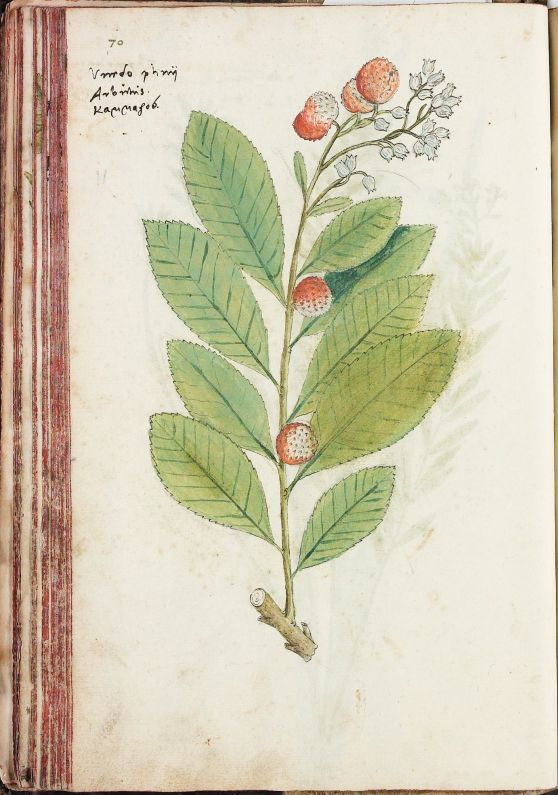 70
Vnedo plinij
Arbutus.
καμμαρος.